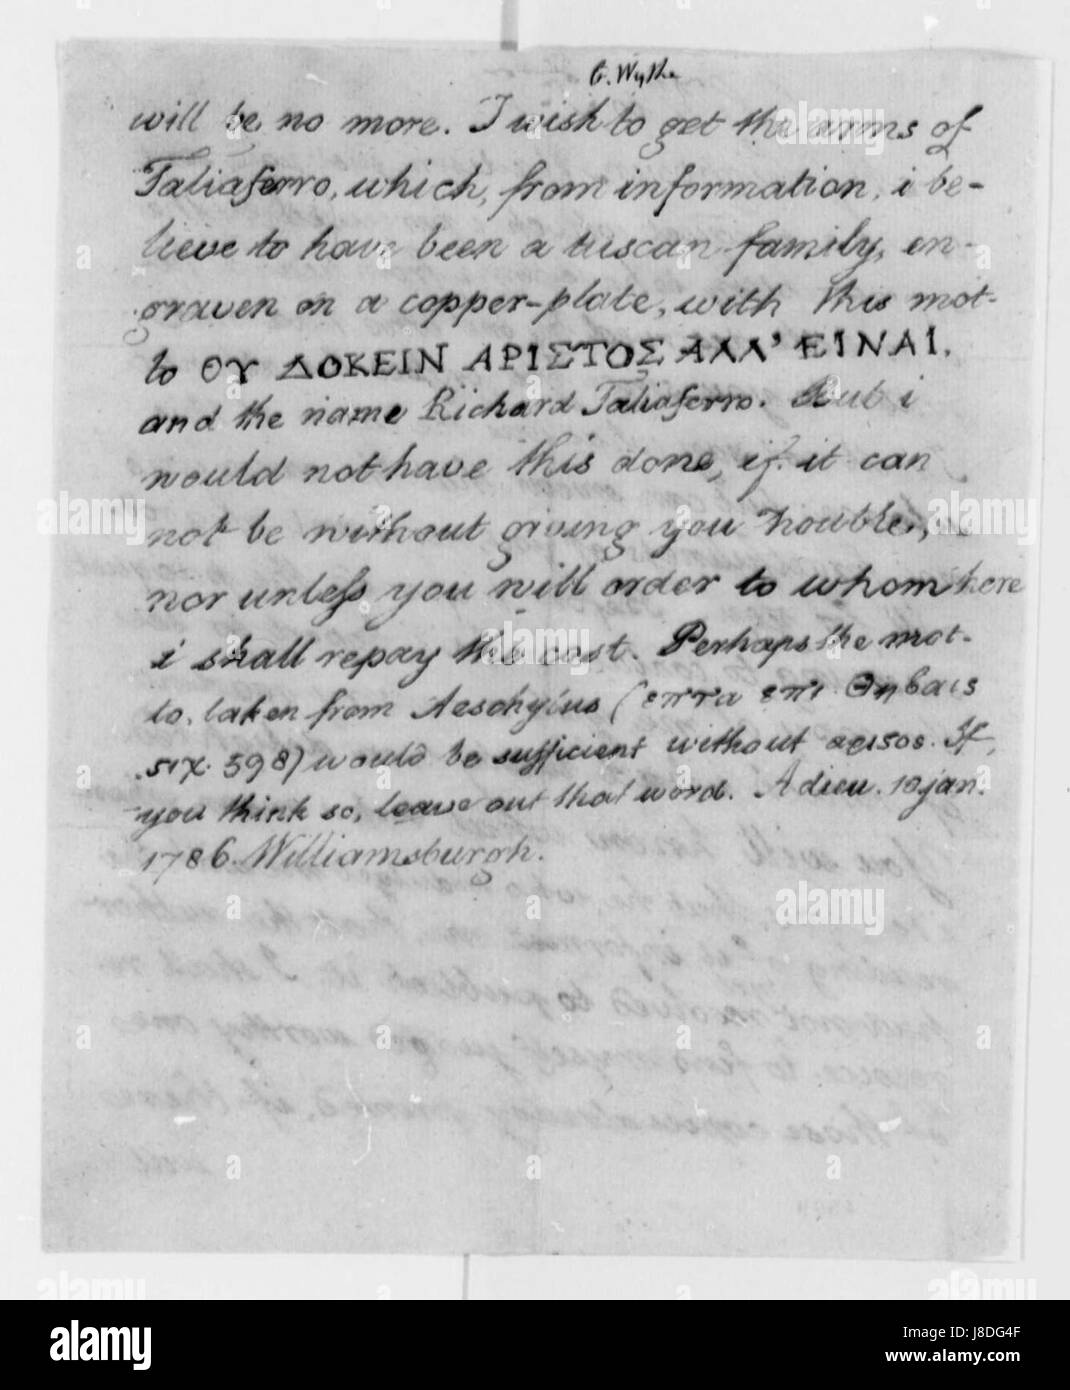 G. Wythe
will be no more. I wish to get the arms of
Taliaferro, which, from information, i be-
lieve to have been a tuscan family, en-
graven on a copper-plate, with this mot-
to ΟΥ ΔΟΚΕΙΝ ΑΡΙΣΤΟΣ ΑΛΛ' ΕΙΝΑΙ,
and the name Richard Taliaferro. But i
would not have this done, if it can
not be without giving you trouble,
nor unless you will order to whom here
i shall repay the cost. Perhaps the mot-
to, taken from Aeschylus (επτα επι Θηβαις
στχ. 598) would be sufficient without αριςος. If
you think so, leave out that word. Adieu. 10 jan.
1786. Williamsburgh.
alamy
www.alamy.com
Image ID: J8DG4F